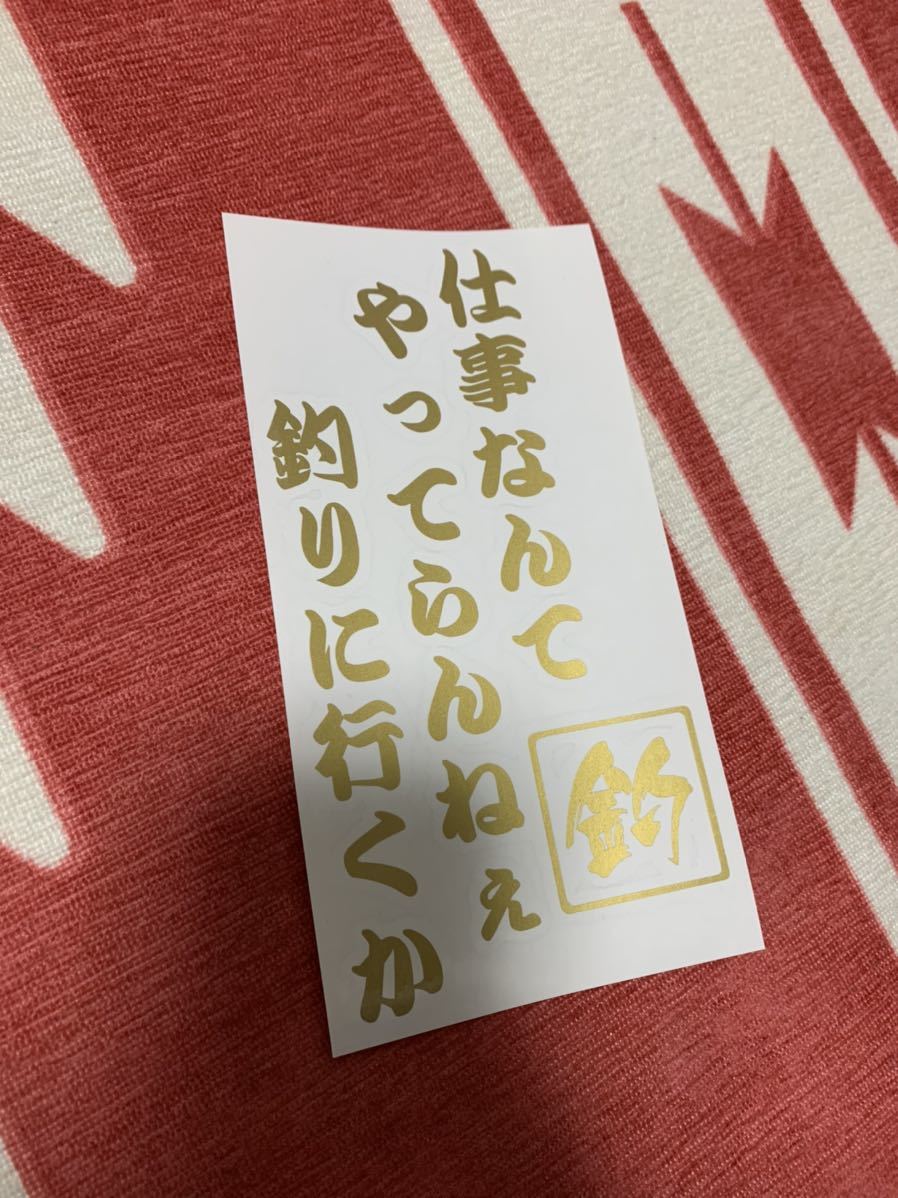 仕事なんて
やってらんねぇ
釣りに行くか
釣